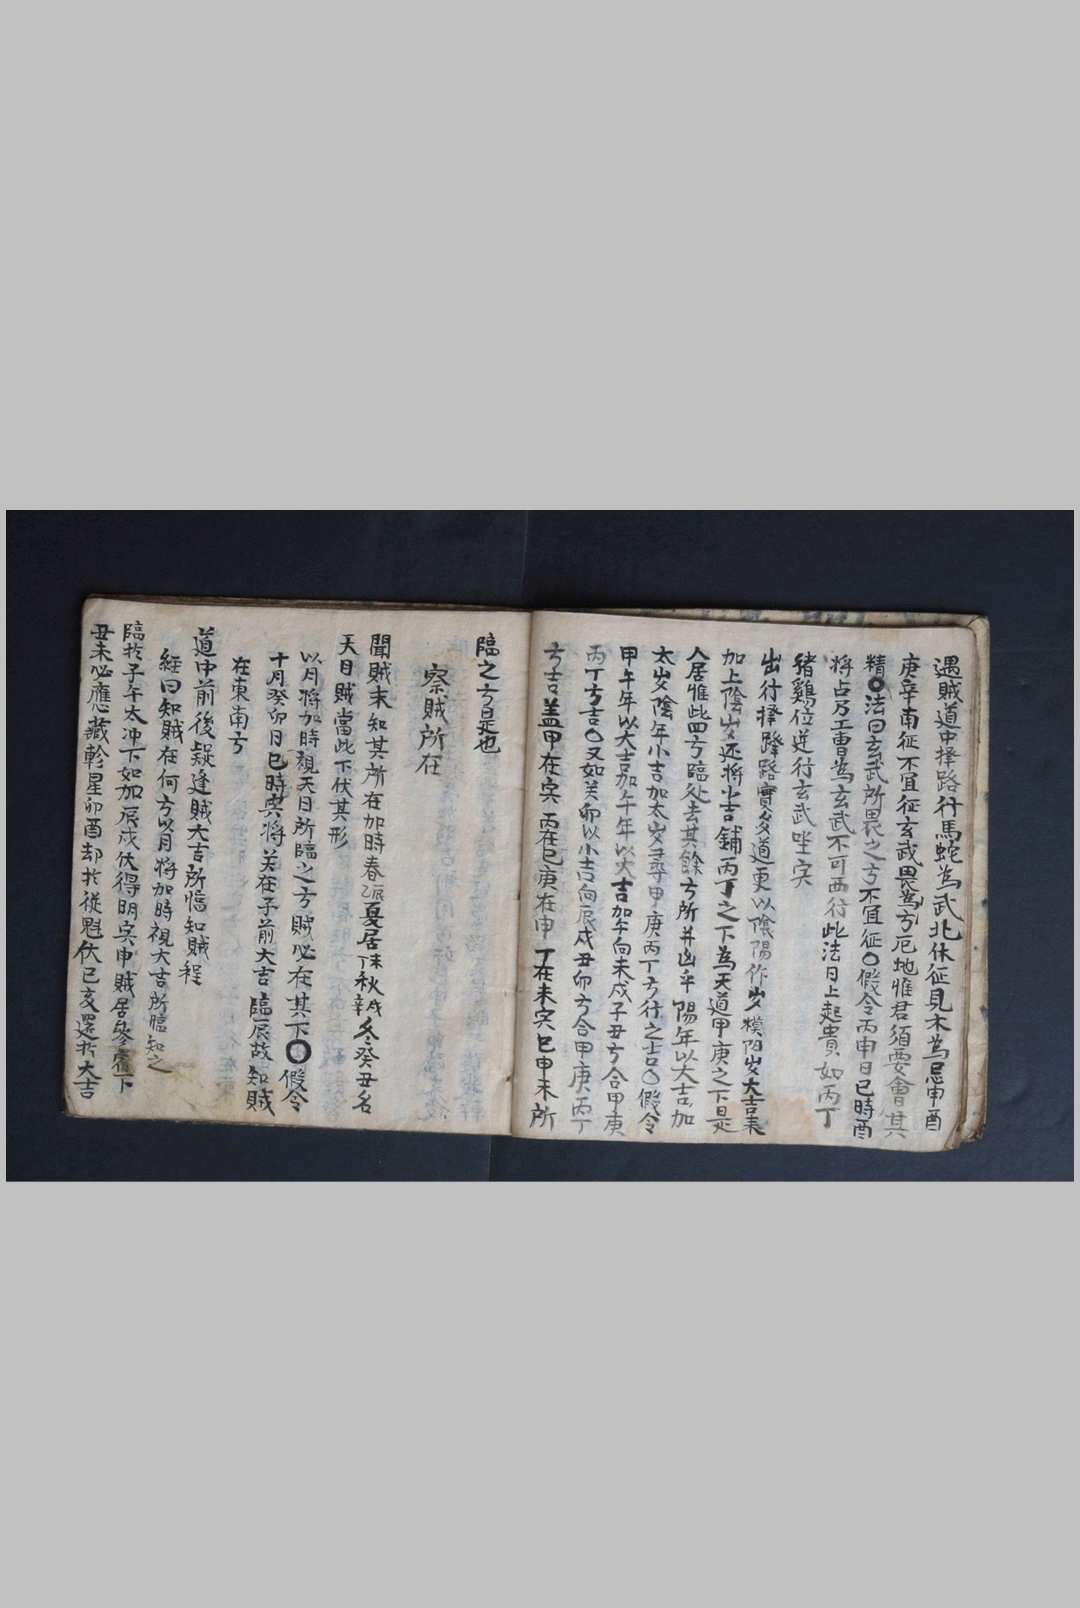 遇賊道中择路行馬蛇為武北休征見木為忌申酉
庚辛南征不宜征玄武畏為方厄地惟君須要會其
精〇法曰玄武所畏之方不宜征〇假令丙申日巳時酉
將占乃工曹為玄武不可西行此法日上起貴如丙丁
猪鷄位逆行玄武坐寅
出行择路實多道更以陰陽作岁模陽岁大吉来
加上陰岁还将小吉鋪丙丁之下為天道甲庚之下是
人居惟此四方臨处去其餘方所并凶乎陽年以大吉加
太岁陰年小吉加太岁尋甲庚丙丁方行之吉〇假令
甲午年以大吉加午年以大吉加午向未戌子丑方合甲庚
丙丁方吉〇又如癸卯以小吉向辰戌丑卯方合甲庚丙丁
方吉盖甲在寅丙在巳庚在申丁在未寅巳申未所
臨之方是也
察賊所在
聞賊未知其所在加時春乙辰夏居丁未秋辛戌冬癸丑名
天目賊當此下伏其形
以月将加時視天目所臨之方賊必在其下〇假令
十月癸卯日巳時寅将癸在子前大吉臨辰故知賊
在東南方
道中前後疑逢賊大吉所臨知賊程
經曰知賊在何方以月将加時視大吉所臨知之
臨扵子午太冲下如加辰戌伏得明寅申賊居參下
丑未必應藏軫星卯酉却扵従魁伏巳亥還扵大吉